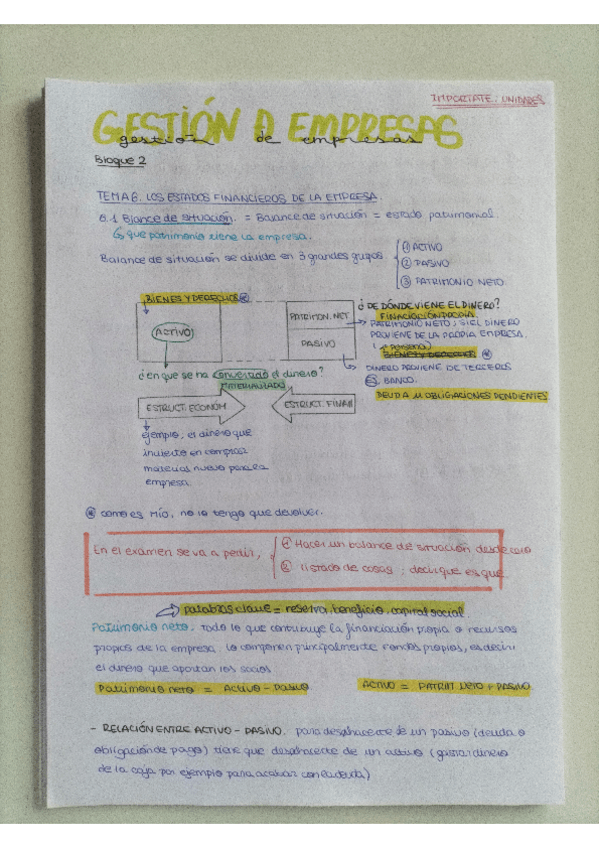 IMPORTATE: UNIDADES
GESTIÓN D EMPRESAS
gestión de empresas
Bloque 2
TEMA 6. LOS ESTADOS FINANCIEROS DE LA EMPRESA.
6.1 Blance de situación. = Balance de situación = estado patrimonial.
↳ que patrimonio tiene la empresa.
Balance de situación se divide en 3 grandes grupos
① ACTIVO
② PASIVO
③ PATRIMONIO NETO.
BIENES Y DERECHOS
ACTIVO
PATRIMON. NET
PASIVO
¿DE DÓNDE VIENE EL DINERO?
FINANCIACIÓN PROPIA.
PATRIMONIO NETO; SI EL DINERO
PROVIENE DE LA PROPIA EMPRESA.
BIENES Y DERECHOS
DINERO PROVIENE DE TERCEROS
ES. BANCO.
DEUDA U OBLIGACIONES PENDIENTES
¿en que se ha convertido el dinero?
MATERIALIZADO
ESTRUCT. ECONÓM
ESTRUCT. FINAN
ejemplo; el dinero que
invierto en comprar
materias nuevo para la
empresa.
como es mío, no lo tengo que devolver.
En el exámen se va a pedir,
① Hacer un balance de situación desde cero
② listado de cosas : decir que es que.
palabras clave = reserva, beneficio, capital social.
Patrimonio neto: todo lo que contribuye la financiación propia o recursos
propios de la empresa. Lo componen principalmente fondos propios, es decir
el dinero que aportan los socios
Patrimonio neto = Activo - Pasivo
ACTIVO = PATRIM NETO + PASIVO
- RELACIÓN ENTRE ACTIVO - PASIVO. para deshacerte de un pasivo (deuda o
obligación de pago) tiene que deshacerte de un activo (gastar dinero
de la caja por ejemplo para acabar con la deuda)